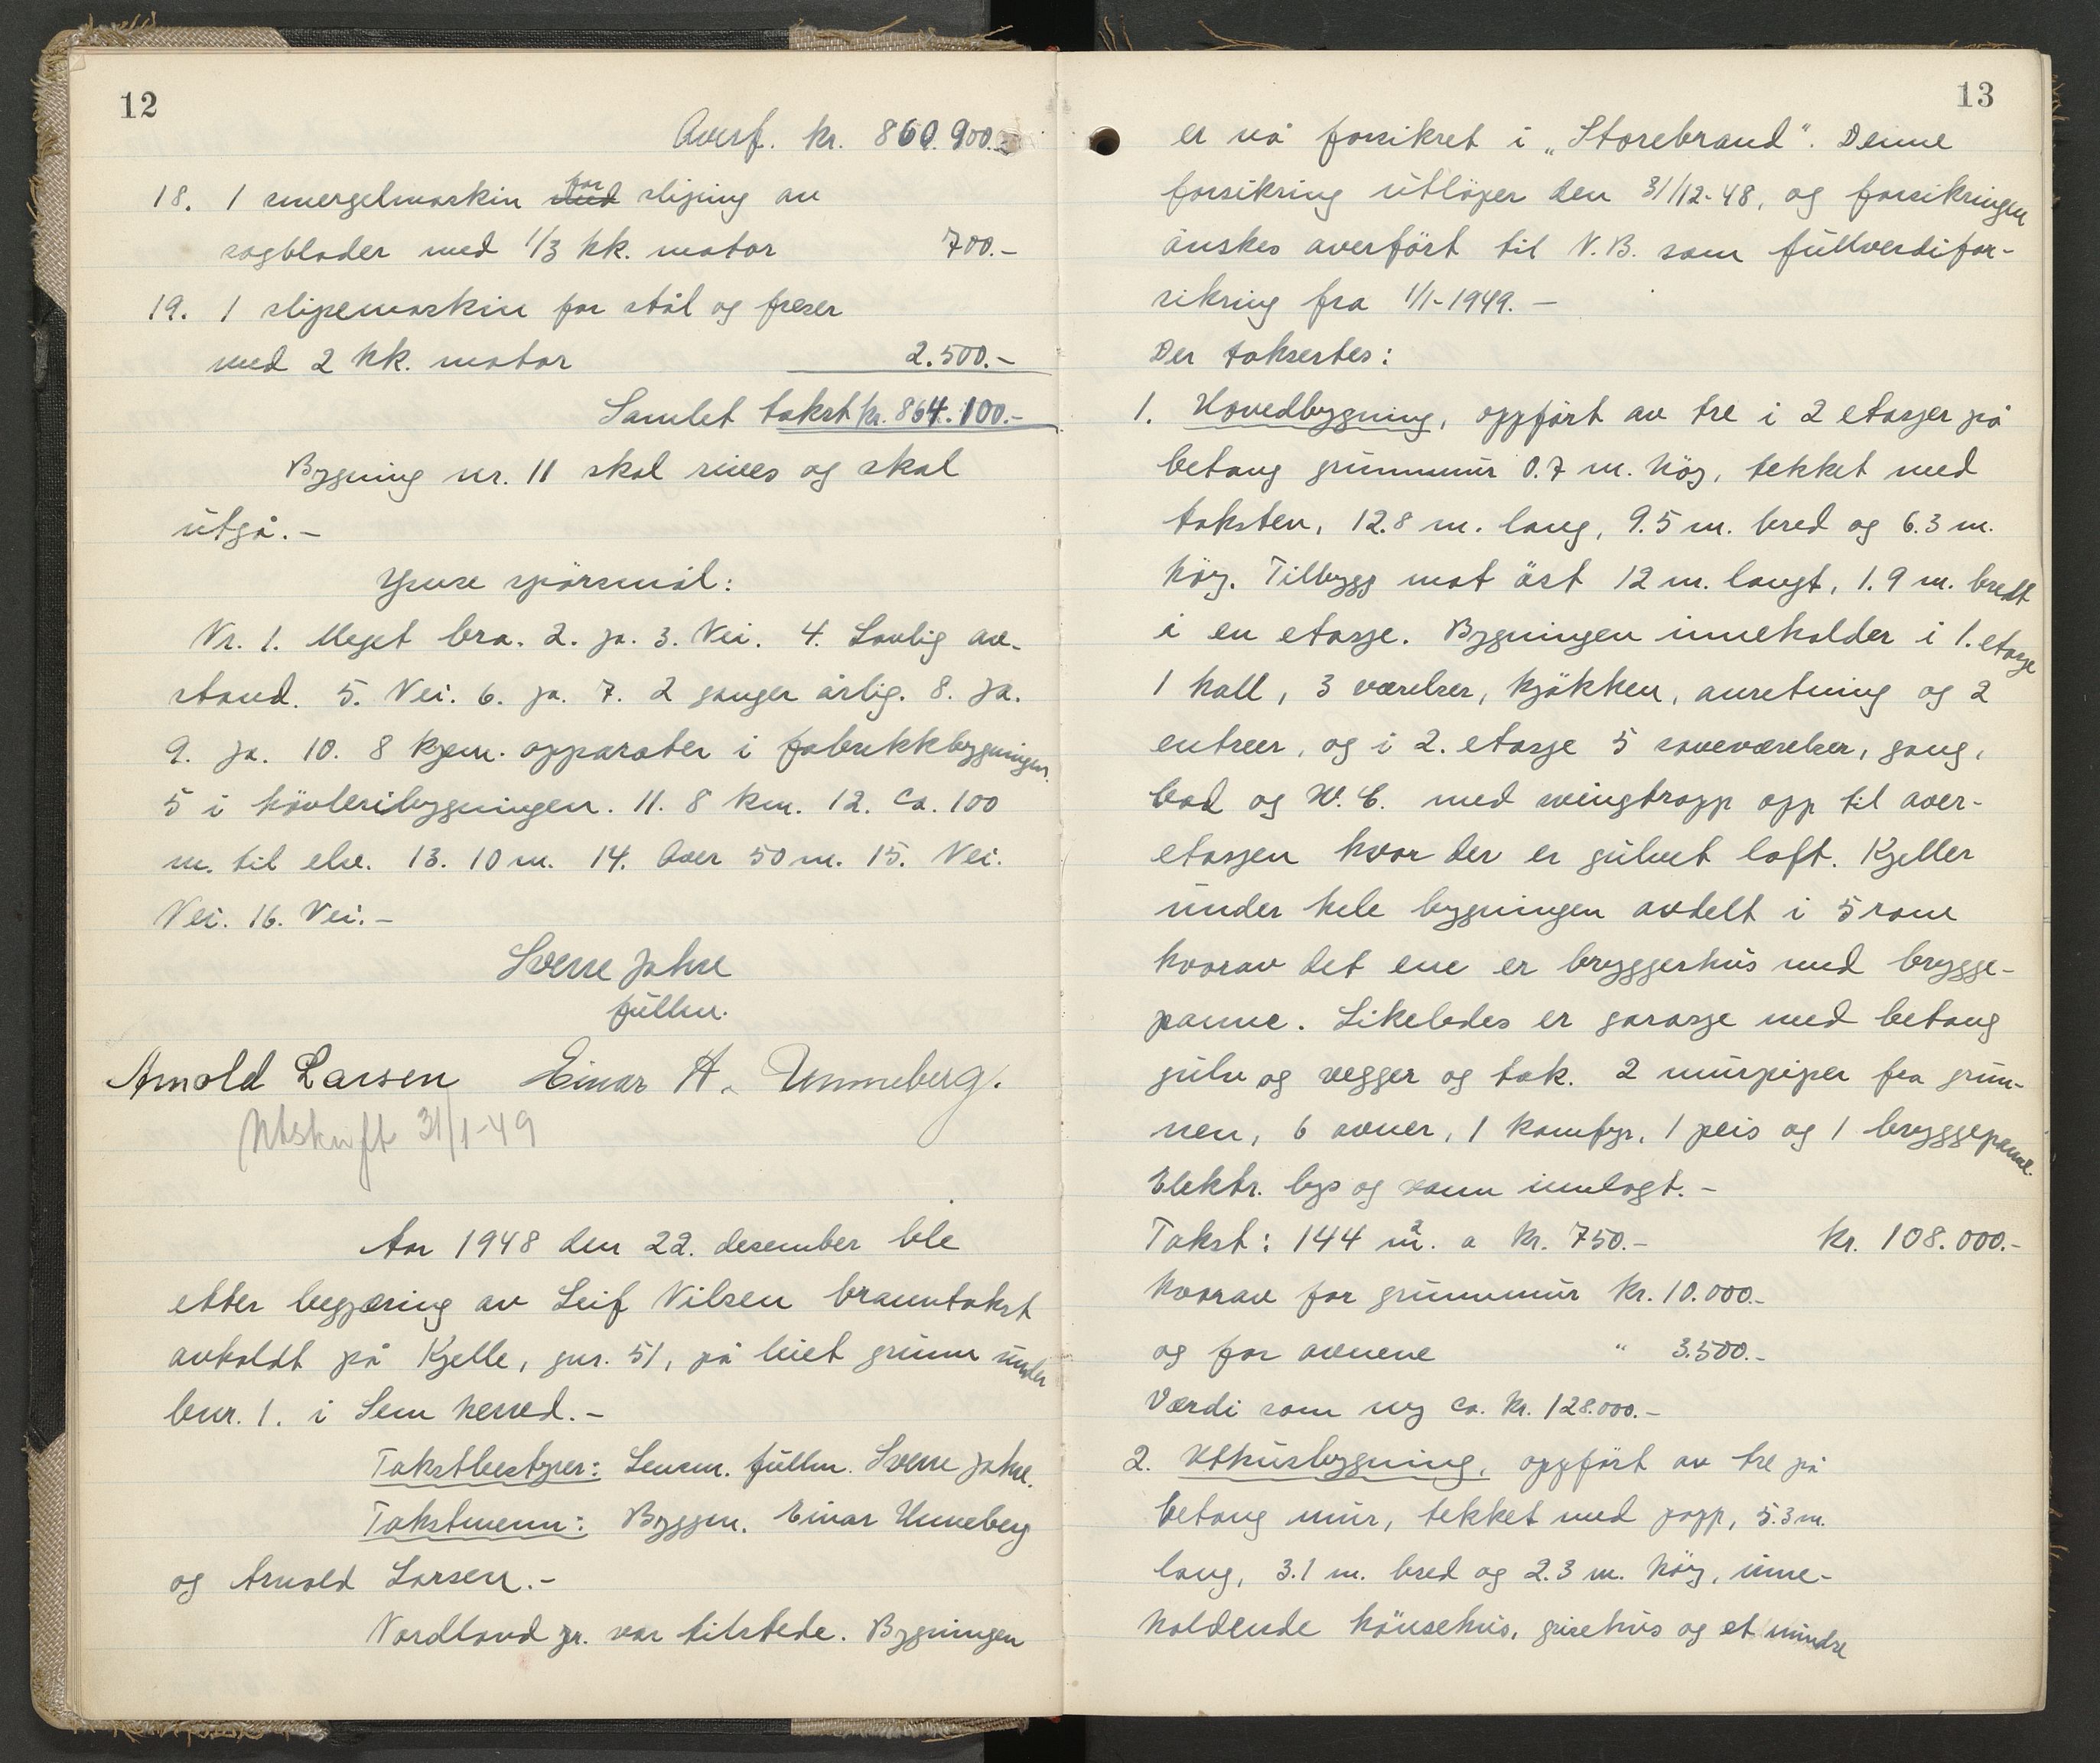 12
Overf. kr. 860.900.-
18. 1 smergelmaskin for sliping av
sagblader med 1/3 hk. motor 700.-
19. 1 slipemaskin for stål og freser
med 2 hk. motor 2.500.-
Samlet takst kr. 864.100.-
Bygning nr. 11 skal rives og skal
utgå.-
Ymse spörsmål:
Nr. 1. Meget bra. 2. Ja. 3. Nei. 4. Lovlig av-
stand. 5. Nei. 6. Ja. 7. 2 ganger årlig. 8. Ja.
9. Ja. 10. 8 kjem. apparater i fabrikkbygningen.
5 i hövleribygningen. 11. 8 km. 12. Ca. 100
m. til elv. 13. 10 m. 14. Over 50 m. 15. Nei.
Nei. 16. Nei.-
Sverre Jahre
fullm.
Arnold Larsen Einar A. Unneberg.
Utskrift 31/1-49
År 1948 den 22. desember ble
etter begjæring av Leif Nilsen branntakst
avholdt på Kjelle, gnr. 51, på leiet grunn under
bnr. 1. i Sem herred.-
Takstbestyrer: Lensm. fullm. Sverre Jahre.
Takstmenn: Byggm. Einar Unneberg
og Arnold Larsen.-
Nordland jr. var tilstede. Bygningen
13
er nå forsikret i „Storebrand". Denne
forsikring utlöper den 31/12-48, og forsikringen
önskes overfört til N.B. som fullverdifor-
sikring fra 1/1-1949.-
Der taksertes:
1. Hovedbygning, oppfört av tre i 2 etasjer på
betong grunnmur 0.7 m. höy, tekket med
taksten, 12.8 m. lang, 9.5 m. bred og 6.3 m.
höy. Tilbygg mot öst 12 m. langt, 1.9 m. bredt
i en etasje. Bygningen inneholder i 1. etasje
1 hall, 3 værelser, kjökken, anretning og 2
entreer, og i 2. etasje 5 soveværelser, gang,
bad og W.C. med svingtrapp opp til over-
etasjen hvor der er gulvet loft. Kjeller
under hele bygningen avdelt i 5 rom
hvorav det ene er bryggerhus med brygge-
panne. Likeledes er garasje med betong
gulv og vegger og tak. 2 murpiper fra grun-
nen, 6 ovner, 1 komfyr, 1 peis og 1 bryggepanne.
Elektr. lys og vann innlagt.-
Takst: 144 m². a kr. 750.- kr. 108.000.-
hvorav for grunnmur kr. 10.000.-
og for ovnene " 3.500.-
Værdi som ny ca. kr. 128.000.-
2. Uthusbygning, oppfört av tre på
betong mur, tekket med papp, 5.3 m.
lang, 3.1 m. bred og 2.3 m. höy, inne-
holdende hönsehus, grisehus og et mindre